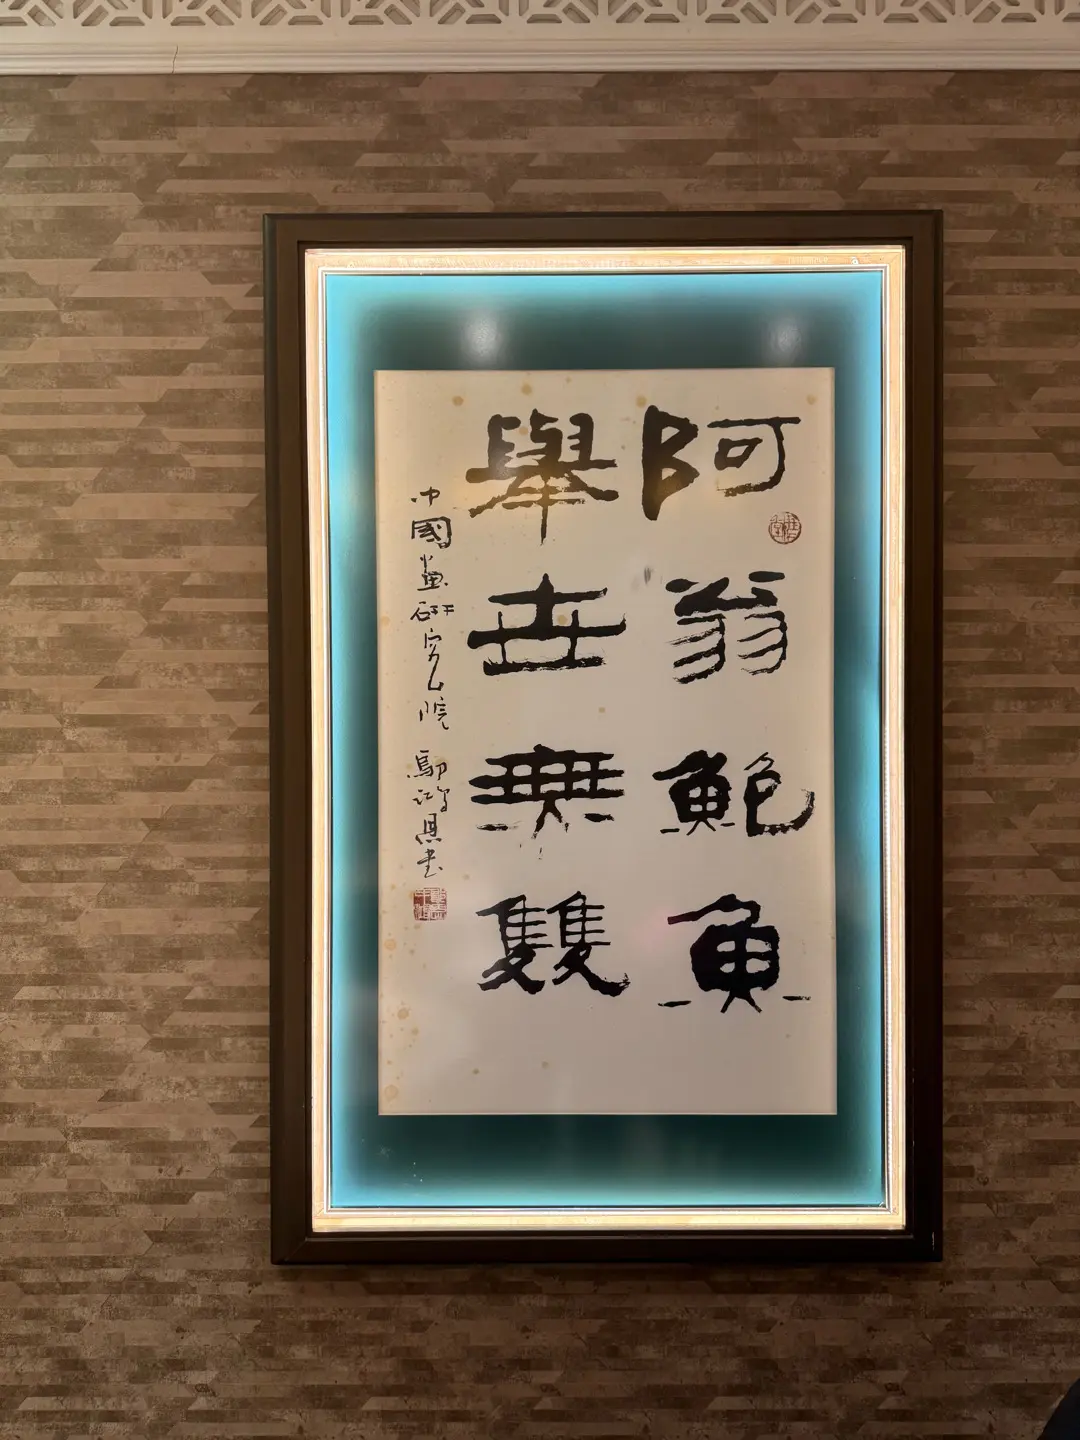 阿翁鮑魚
舉世無雙
中國畫研究院 鄢鴻恩書